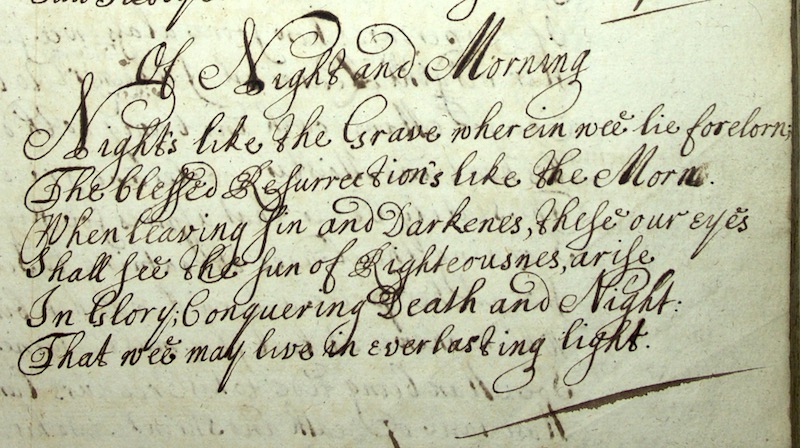 Of Night and Morning
Night's like the Grave wherein wee lie forelorn;
The blessed Resurrection's like the Morn.
When leaving sin and Darkenes, these our eyes
Shall see the sun of Righteousnes, arise
In Glory; Conquering Death and Night:
That wee may live in everlasting light.